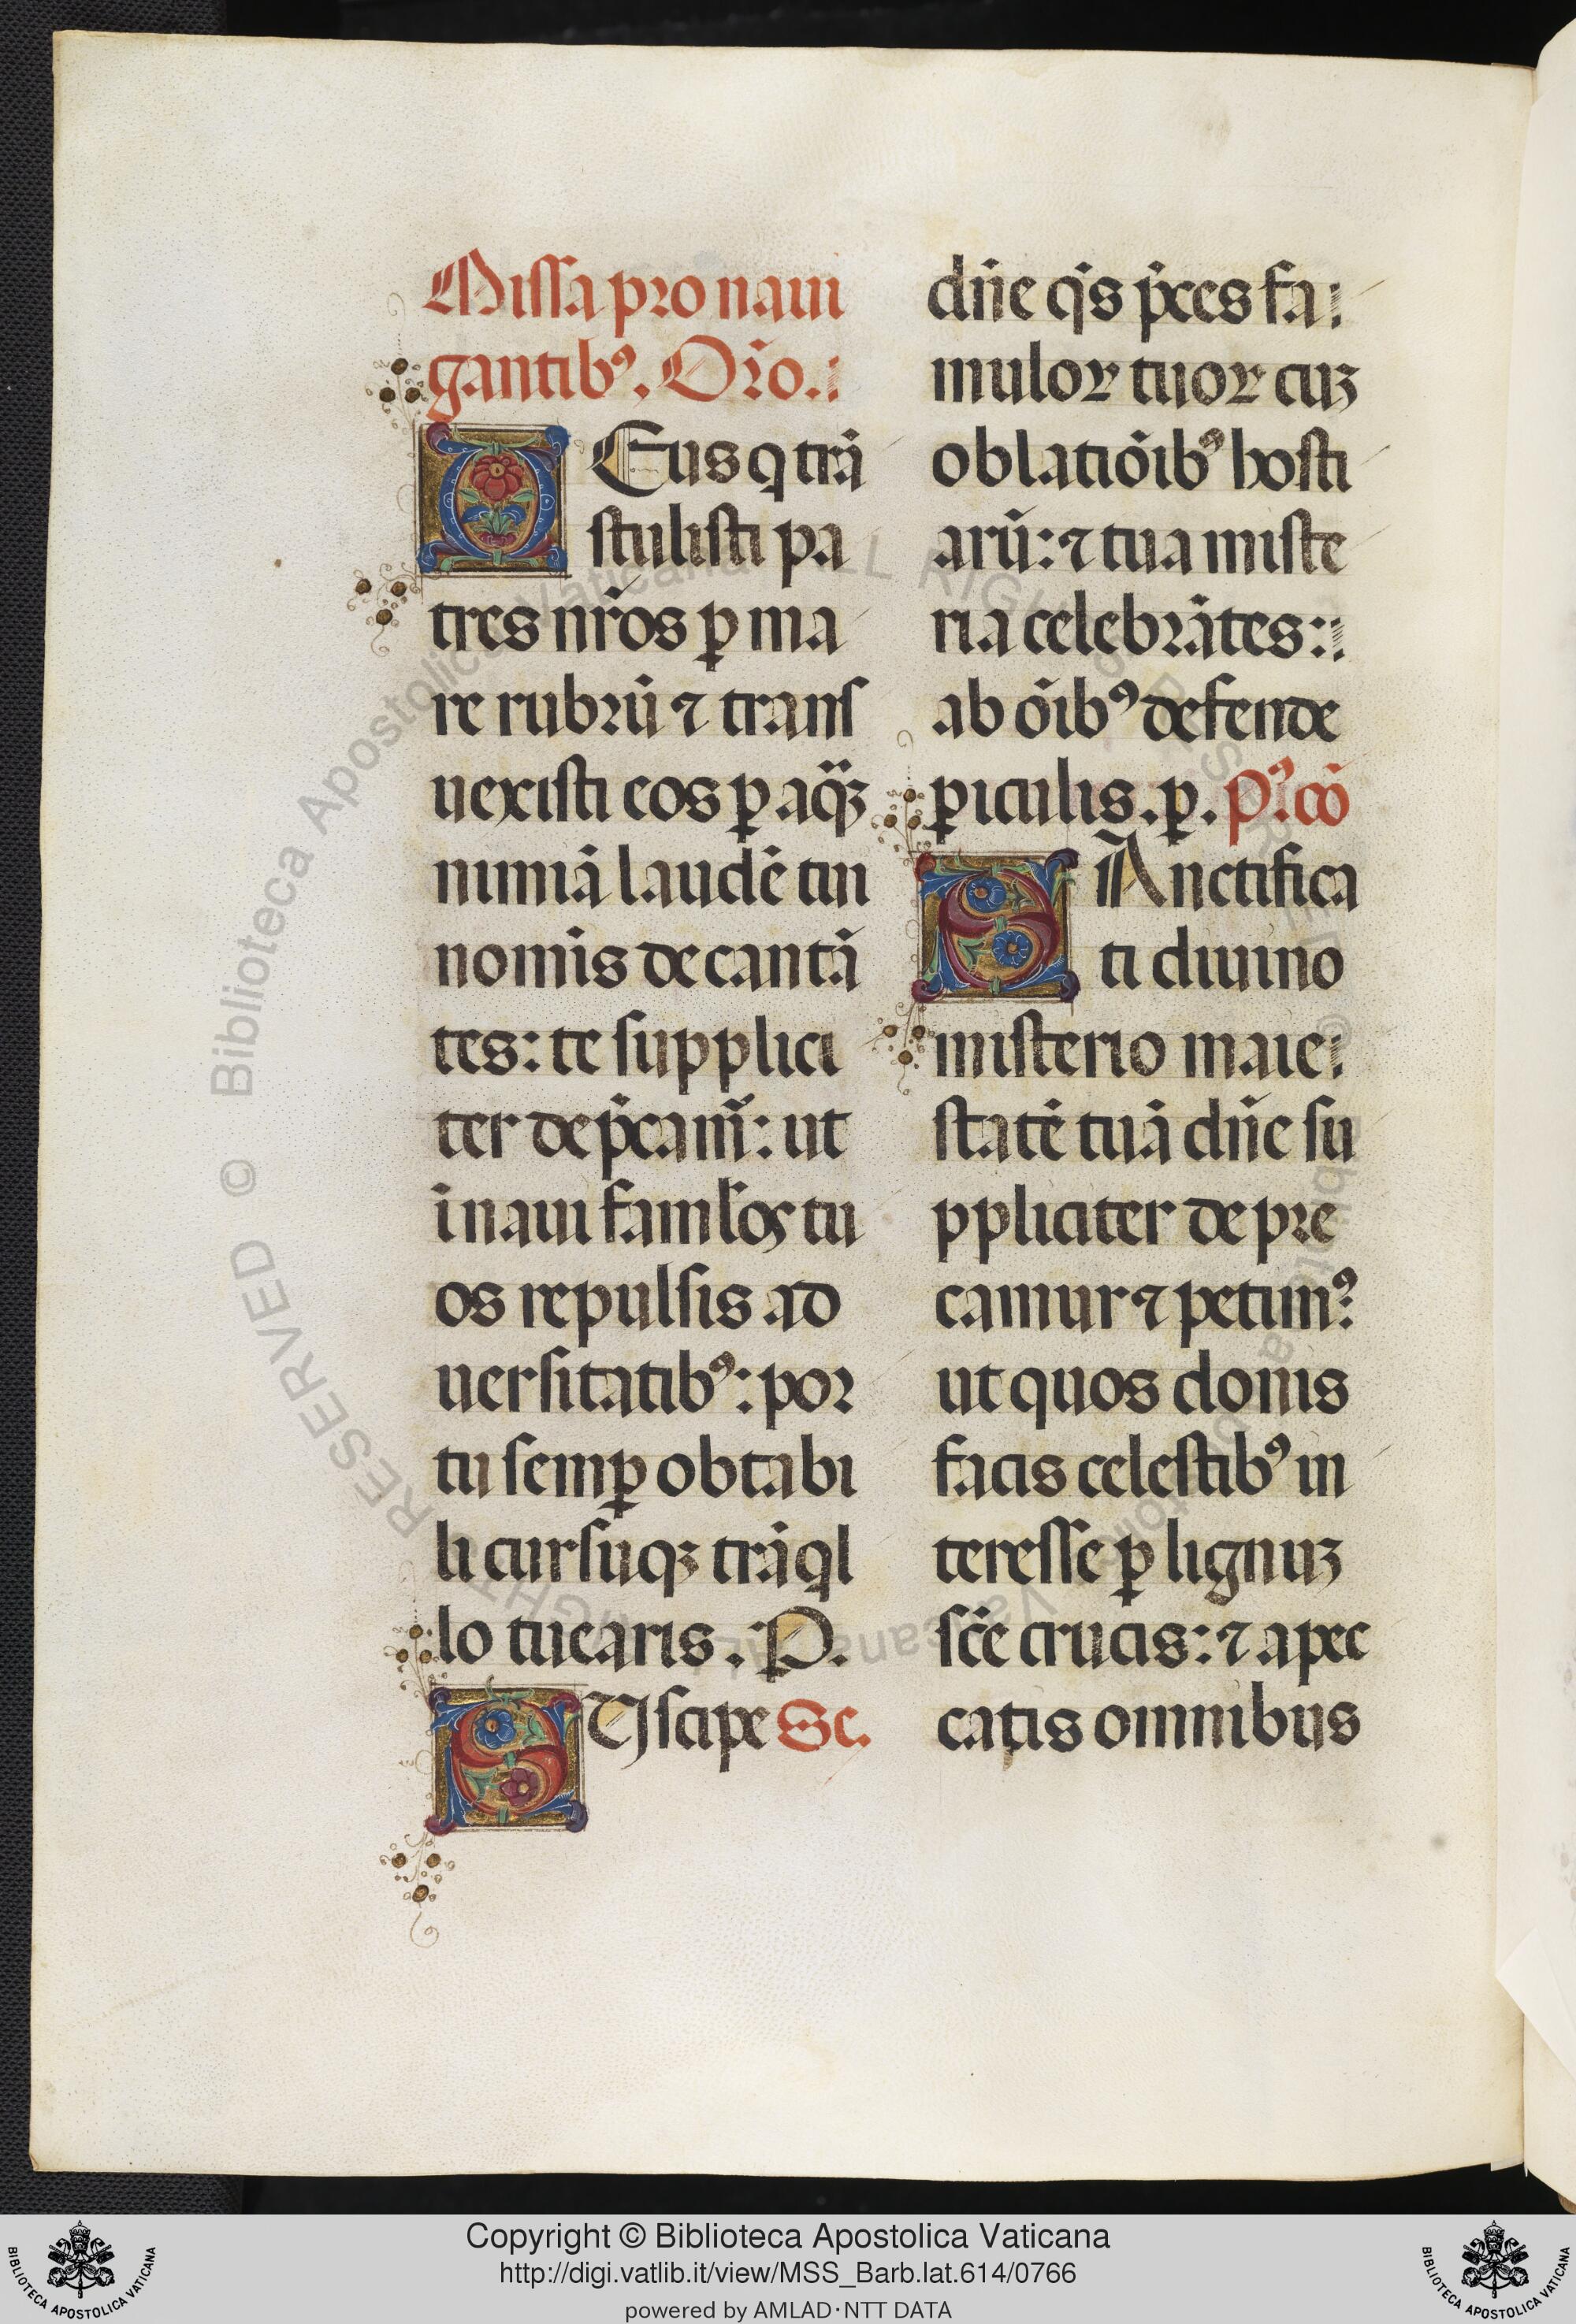 Missa pro naui
gantibꝰ. Or̃o.
DEus q trã
stulisti pa
tres nr̃os ꝑ ma
re rubrũ ⁊ trans
uexisti eos ꝑ aq̃ꝫ
nimiã laudẽ tui
nomis decantã
tes: te supplici
ter dep̃camr̃: ut
ĩ naui faml̃os tu
os repulsis ad
uersitatibꝰ: por
tu semꝑ obtabi
li cursuqꝫ trãql
lo tuearis. P.
SUscipe Sc.
dñe q̃s p̃ces fa
muloꝝ tuoꝝ cuꝫ
oblatiõibꝰ hosti
arũ: ⁊ tua miste
ria celebrãtes:
ab õibꝰ defende
ꝑiculis. ꝑ. Pꝰ. cõ
SAnctifica
ti diuino
misterio maie
statẽ tuã dñe su
ppliciter depre
camur ⁊ petimꝰ:
ut quos donis
facis celestibꝰ in
teresse ꝑ lignuꝫ
sc̃e crucis: ⁊ a pec
catis omnibus
© Biblioteca Apostolica Vaticana ALL RIGHTS RESERVED
Copyright © Biblioteca Apostolica Vaticana
http://digi.vatlib.it/view/MSS_Barb.lat.614/0766
powered by AMLAD·NTT DATA
BIBLIOTECA APOSTOLICA VATICANA
BIBLIOTECA APOSTOLICA VATICANA